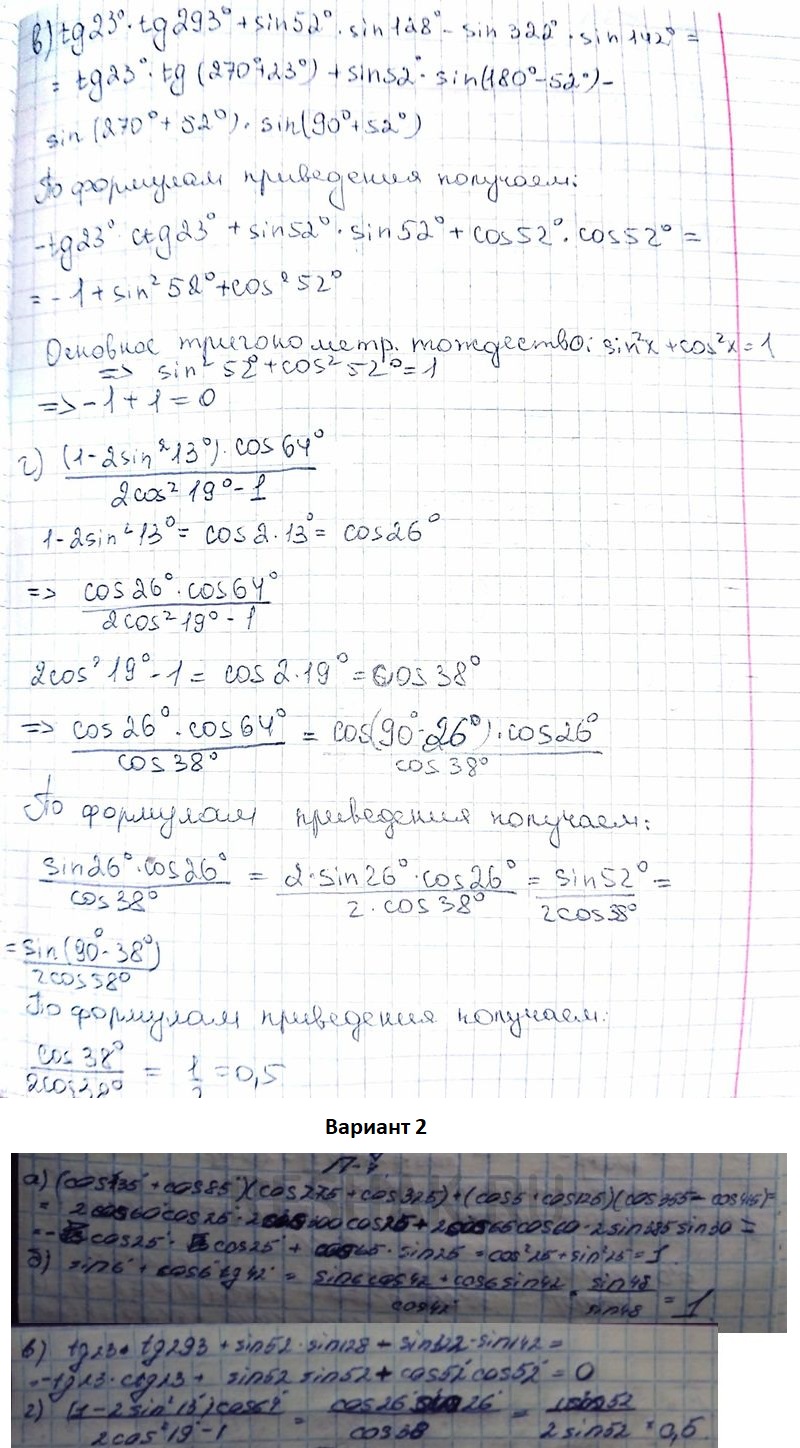 в) tg23°·tg293° + sin52°·sin128° - sin322°·sin142° =
= tg23°·tg(270°+23°) + sin52°·sin(180°-52°) -
sin(270°+52°)·sin(90°+52°)
По формулам приведения получаем:
-tg23°·ctg23° + sin52°·sin52° + cos52°·cos52° =
= -1 + sin²52° + cos²52°
Основное тригонометр. тождество: sin²x + cos²x = 1
=> sin²52° + cos²52° = 1
=> -1 + 1 = 0
г) (1-2sin²13°)·cos64° / 2cos²19°-1
1-2sin²13° = cos2·13° = cos26°
=> cos26°·cos64° / 2cos²19°-1
2cos²19°-1 = cos2·19° = cos38°
=> cos26°·cos64° / cos38° = cos(90°-26°)·cos26° / cos38°
По формулам приведения получаем:
sin26°·cos26° / cos38° = 2·sin26°·cos26° / 2·cos38° = sin52° / 2cos38° =
= sin(90°-38°) / 2cos38°
По формулам приведения получаем:
cos38° / 2cos38° = 1/2 = 0,5
Вариант 2
П-7
б) sin6 + cos6 tg42 = sin6cos42 + cos6sin42 / cos42 = sin48 / sin48 = 1
в) tg23·tg293 + sin52·sin128 - sin322·sin142 =
= -tg23·ctg23 + sin52 sin52 + cos52 cos52 = 0
г) (1-2sin²13)cos64 / 2cos²19-1 = cos26 sin26 / cos38 = sin52 / 2sin52 = 0,5